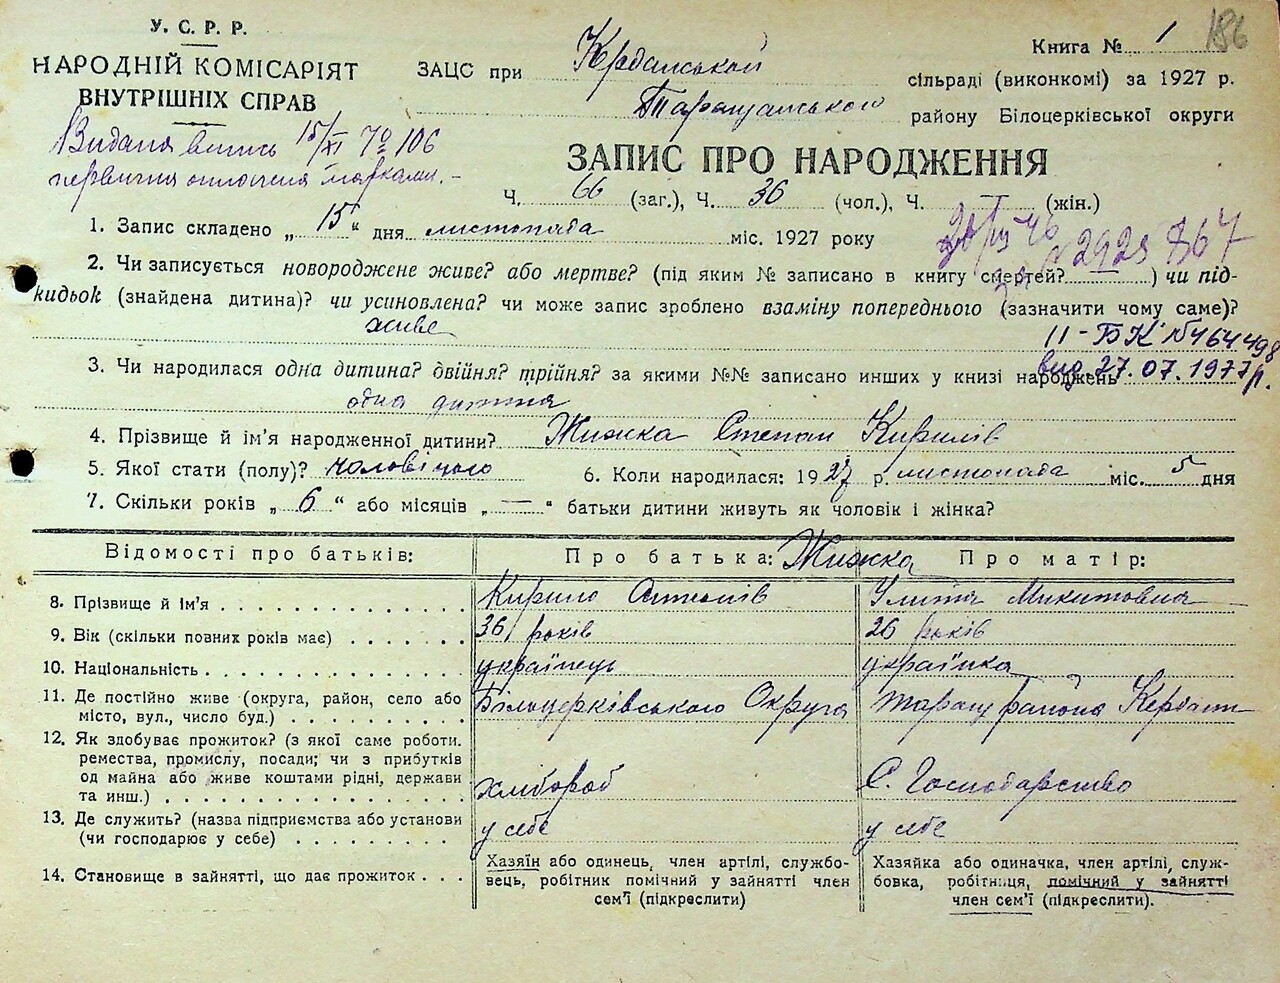 У. С. Р. Р.
НАРОДНІЙ КОМІСАРІЯТ
ВНУТРІШНІХ СПРАВ
Видана випись 15/XI № 106
первична оплочена марками. –
Книга № 1 186
ЗАЦС при Керданській сільраді (виконкомі) за 1927 р.
Таращанського району Білоцерківської округи
ЗАПИС ПРО НАРОДЖЕННЯ
Ч. 66 (заг.), Ч. 36 (чол.), Ч. — (жін.)
1. Запис складено „ 15 “ дня листопада міс. 1927 року
2. Чи записується новороджене живе? або мертве? (під яким № записано в книгу смертей? — ) чи під-
кидьок (знайдена дитина)? чи усиновлена? чи може запис зроблено взаміну попереднього (зазначити чому саме)?
живе
II - БК № 464498
вид 27.07.1977 р.
3. Чи народилася одна дитина? двійня? трійня? за якими №№ записано инших у книзі народжень
одна дитина
4. Прізвище й ім'я народженної дитини? Жижка Степан Кирилів
5. Якої стати (полу)? чоловічого 6. Коли народилася: 1927 р. листопада міс. 5 дня
7. Скільки років „ 6 “ або місяців „ — “ батьки дитини живуть як чоловік і жінка?
Відомості про батьків: Про батька: Жижка Про матір:
8. Прізвище й ім'я Кирило Остапів Улита Микитовна
9. Вік (скільки повних років має) 36 років 26 років
10. Національність українець українка
11. Де постійно живе (округа, район, село або
місто, вул., число буд.) Білоцерківського Округа Таращ района
12. Як здобуває прожиток? (з якої саме роботи.
ремества, промислу, посади; чи з прибутків
од майна або живе коштами рідні, держави
та инш.) хлібороб С. Господарство
13. Де служить? (назва підприємства або установи
(чи господарює у себе) у себе у себе
14. Становище в зайнятті, що дає прожиток
Хазяїн або одинець, член артілі, службо-
вець, робітник помічний у зайнятті член
сем'ї (підкреслити)
Хазяйка або одиначка, член артілі, служ-
бовка, робітниця, помічний у зайнятті
член сем'ї (підкреслити).